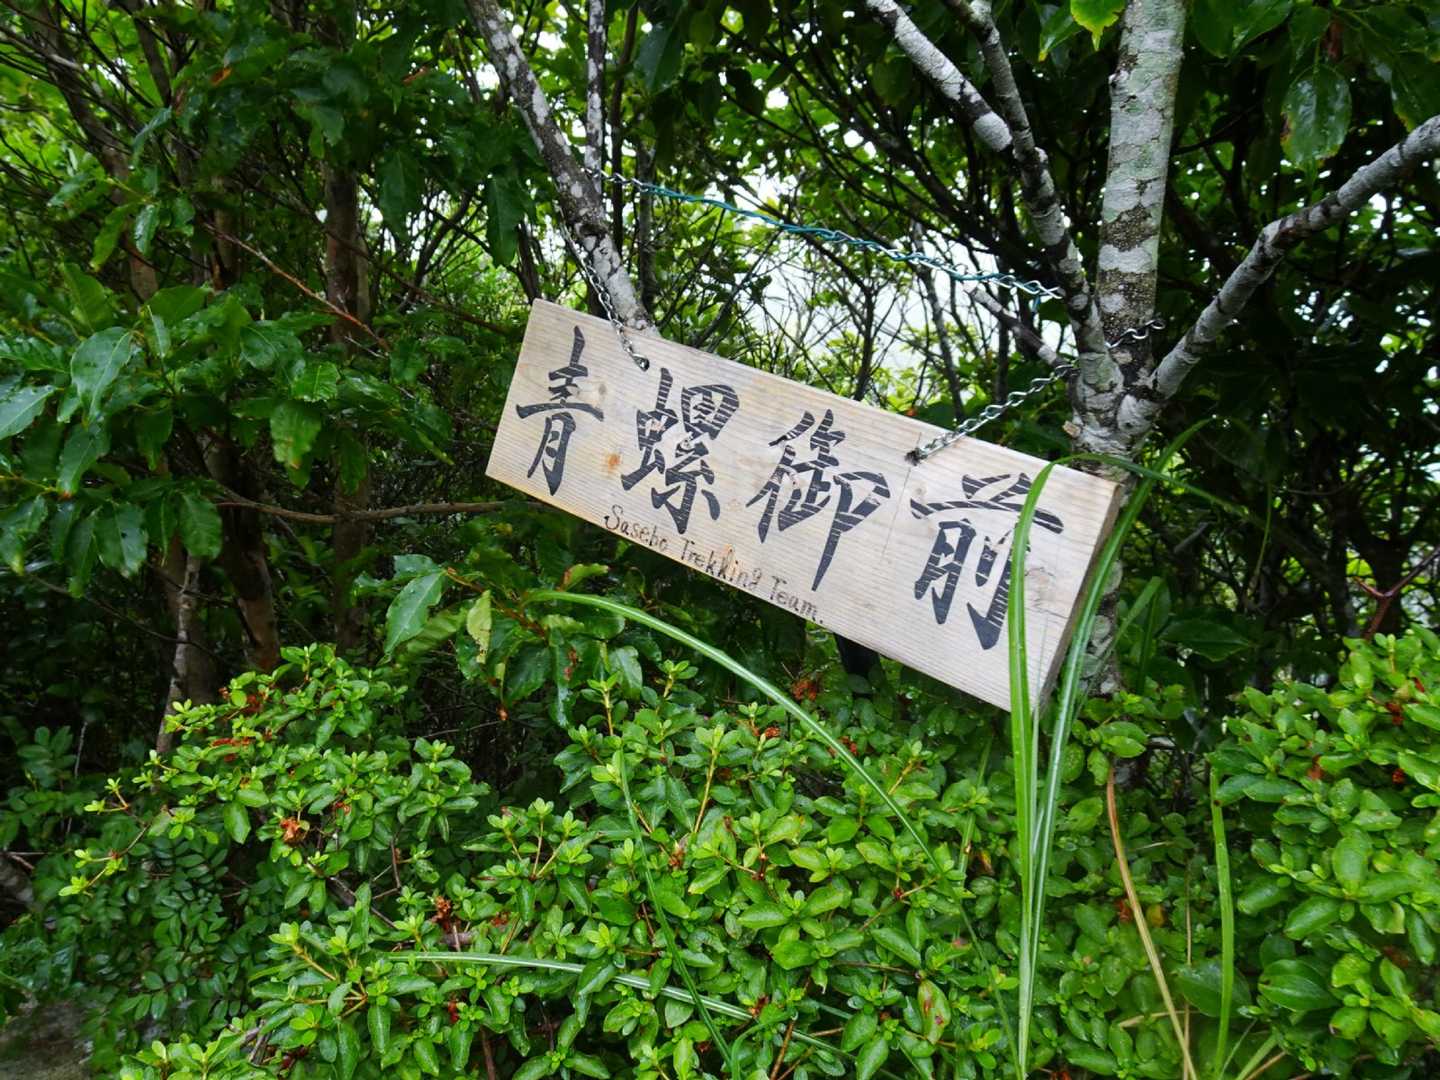 青螺御前
Sasebo Trekking Team.